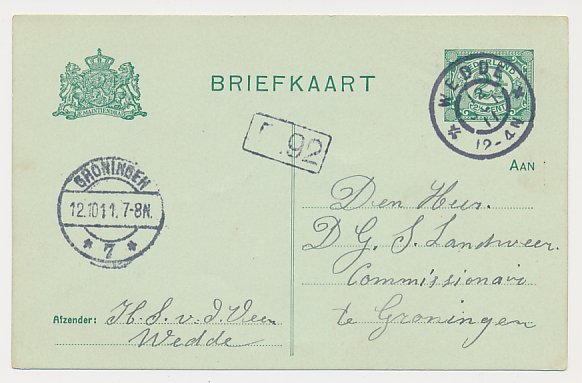 BRIEFKAART
NEDERLAND
WEDDE
12-4N
92
AAN
GRONINGEN
12.10 11. 7-8N.
* 7 *
Den Heer.
D. G. S. Landweer.
Commissionair
te Groningen
Afzender: H. S. v. d. Veen
Wedde